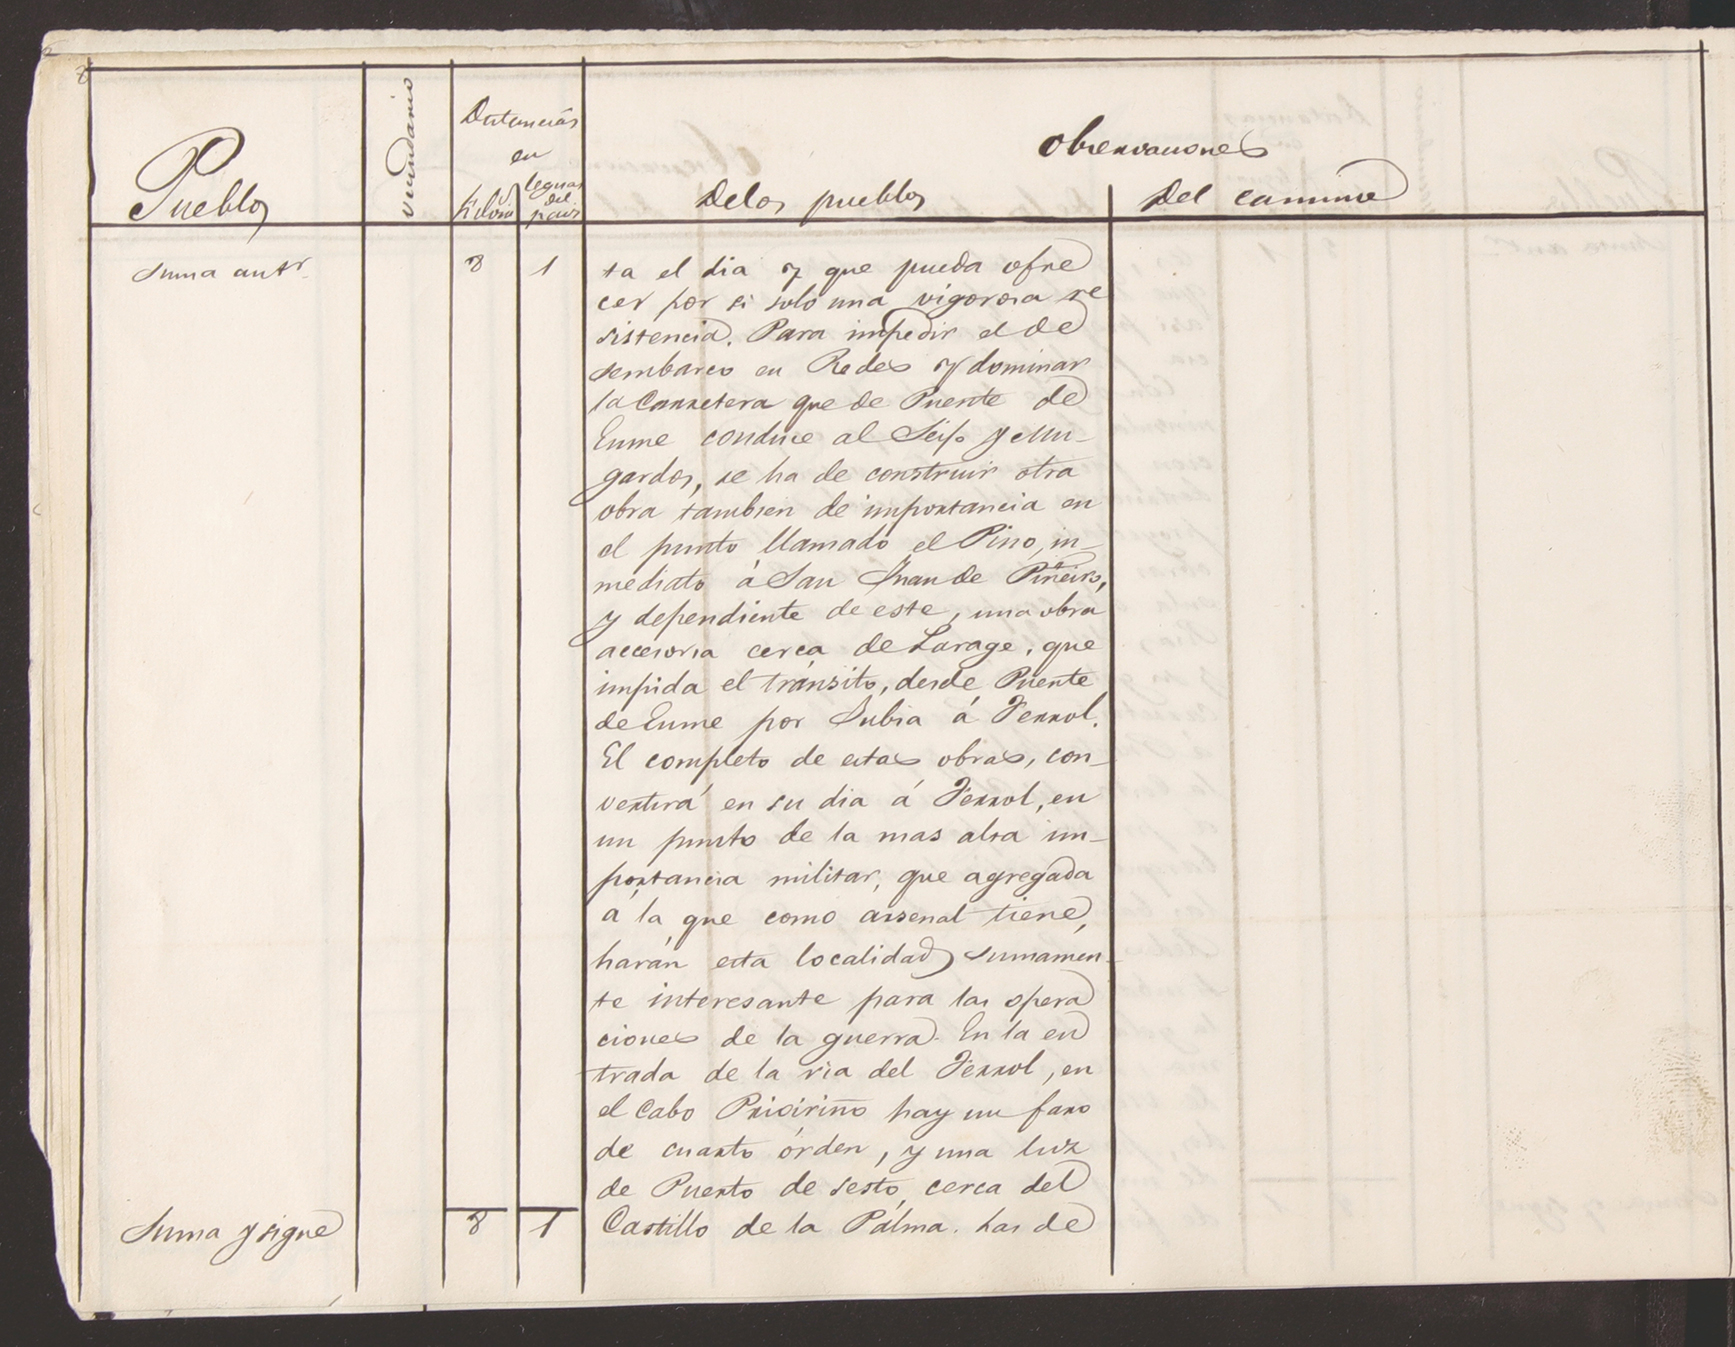 8
Pueblos
vecindario
Distancias
en
Kilóms
leguas
del
pais
Observaciones
De los pueblos
Del camino
Suma antr.
8
1
ta el dia y que pueda ofre
cer por si solo una vigorosa re
sistencia. Para impedir el de
sembarco en Redes y dominar
la Carretera que de Puente de
Eume conduce al Seijo y Mu-
gardos, se ha de construir otra
obra tambien de importancia en
el punto llamado el Pino, in-
mediato á San Juan de Piñeiro,
y dependiente de este, una obra
accesoria cerca de Larage, que
impida el tránsito, desde Puente
de Eume por Jubia á Ferrol.
El completo de estas obras, con-
vertirá en su dia á Ferrol, en
un punto de la mas alta im-
portancia militar, que agregada
á la que como arsenal tiene,
harán esta localidad sumamen-
te interesante para las opera
ciones de la guerra. En la en
trada de la ria del Ferrol, en
el Cabo Prioiriño hay un faro
de cuarto órden, y una luz
de Puerto de sesto, cerca del
Castillo de la Palma. Las de
Suma y sigue
8
1